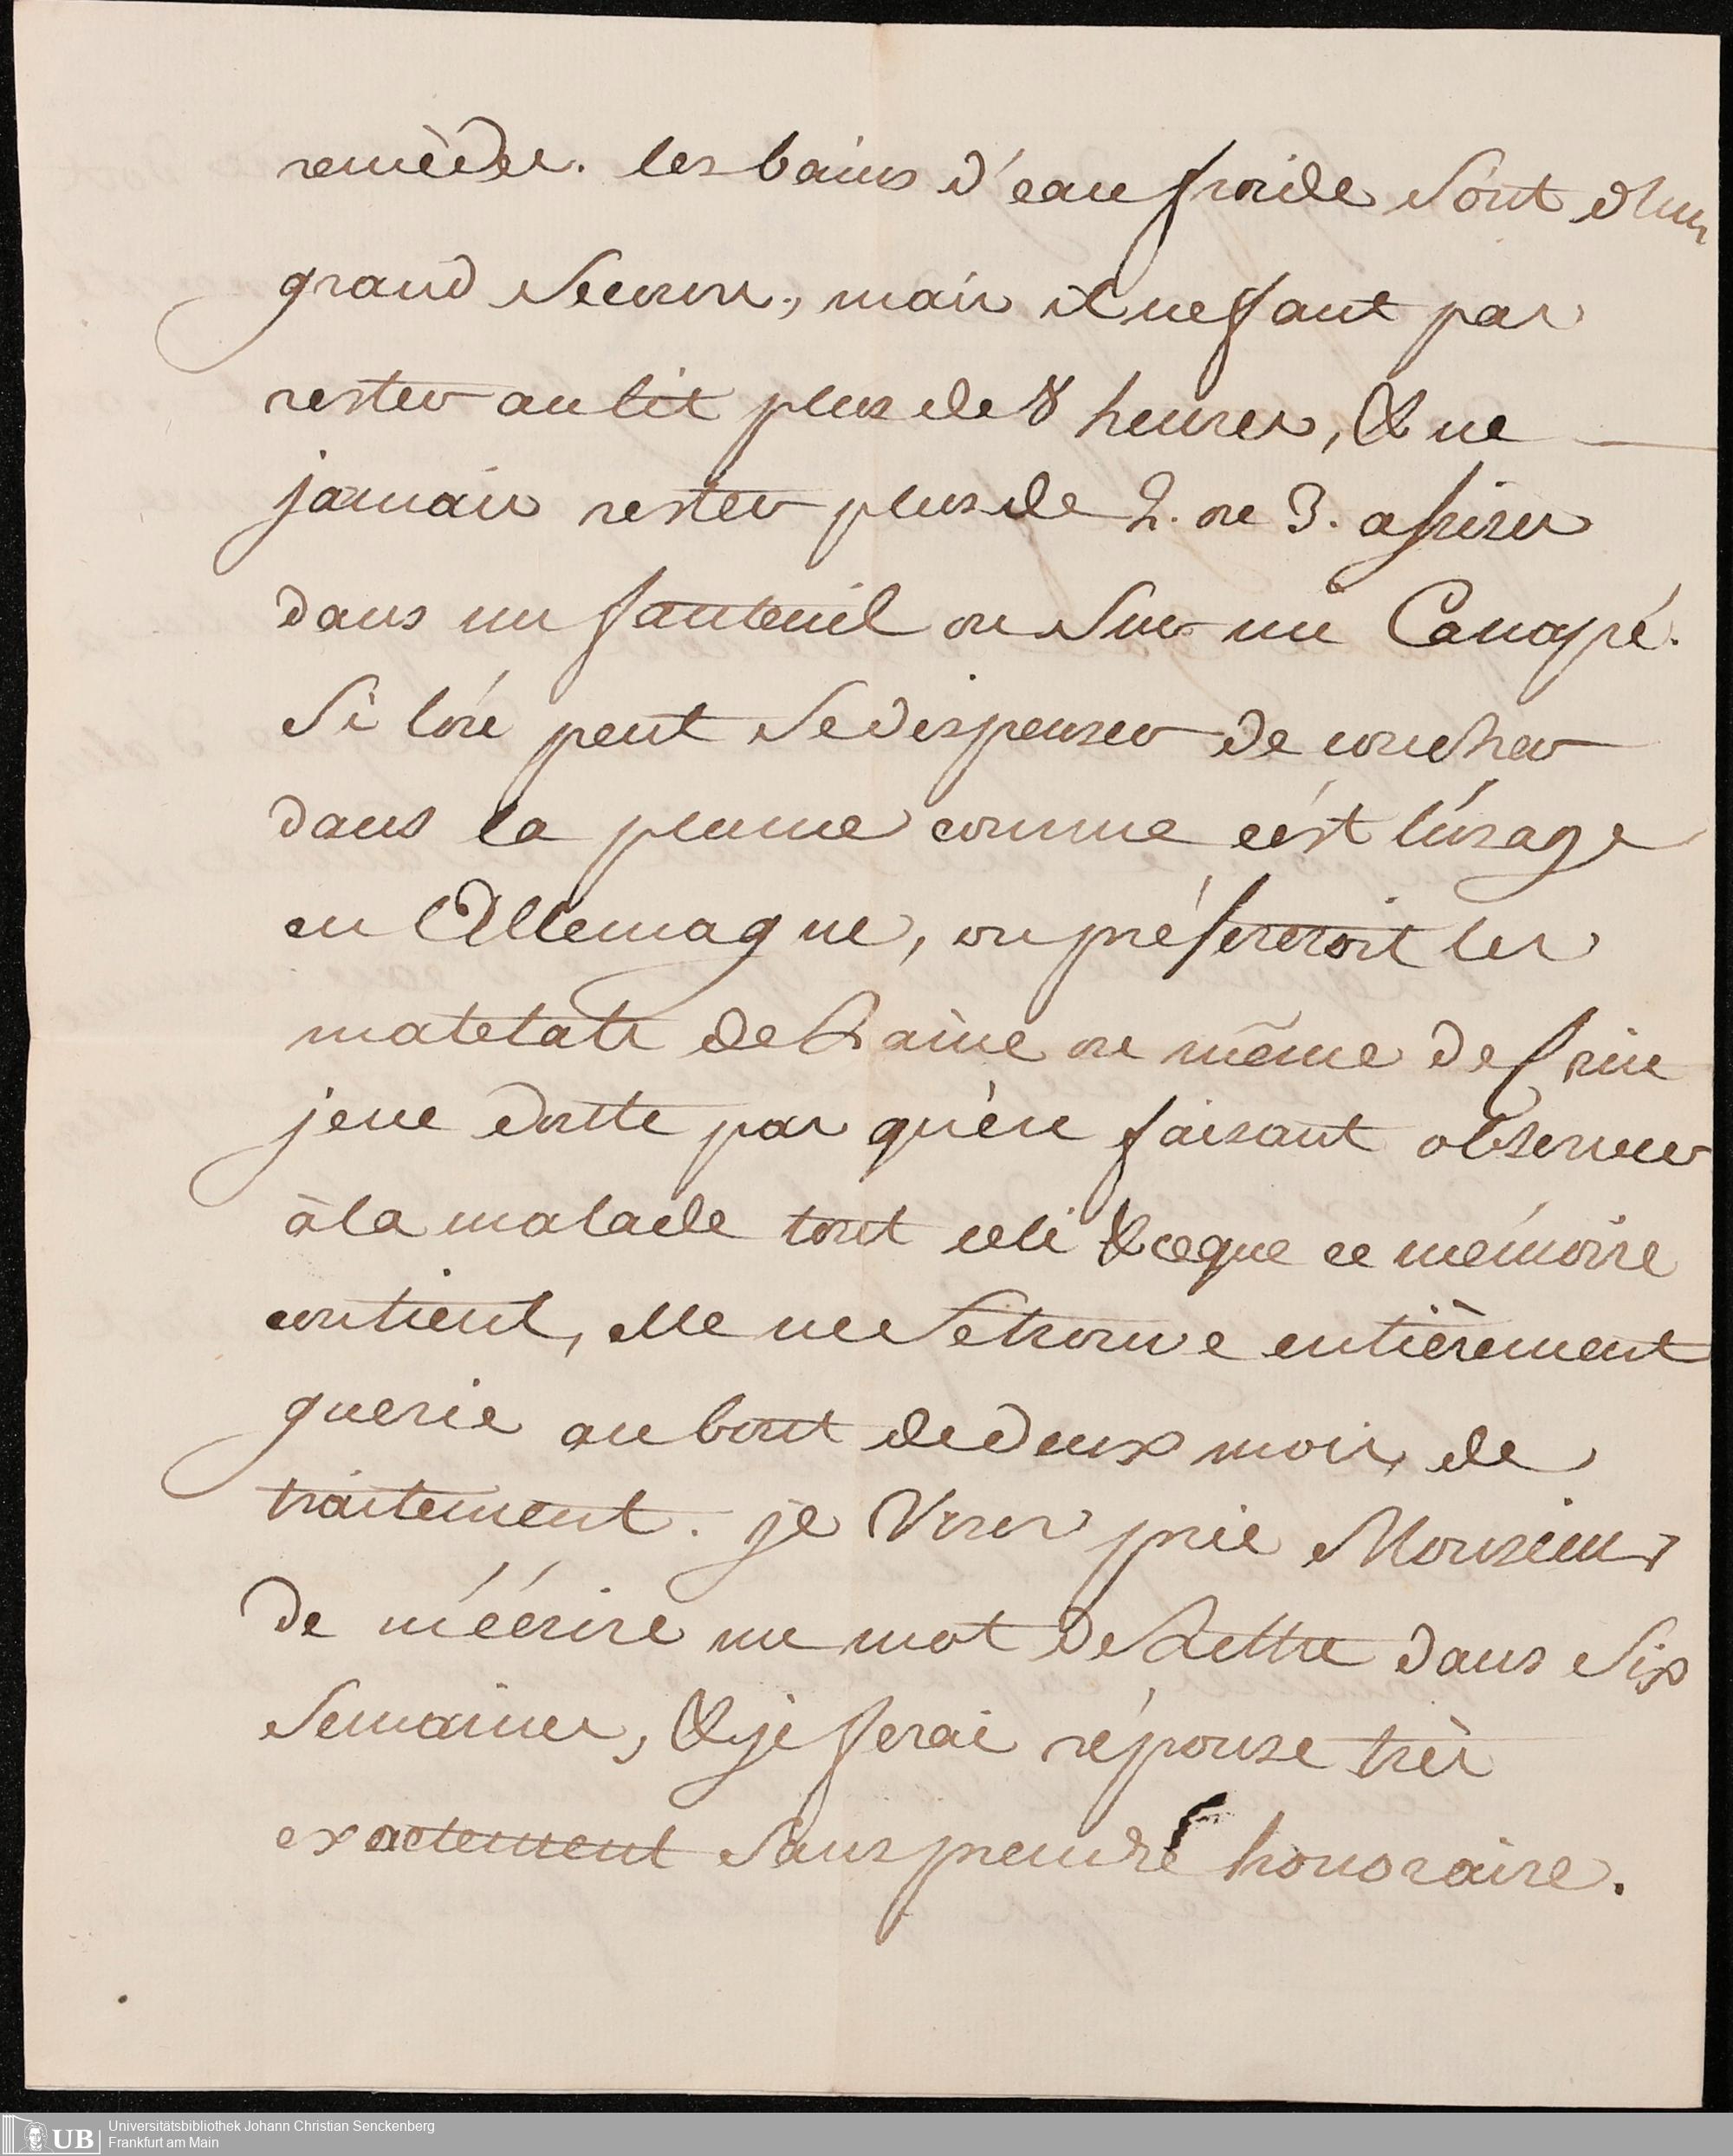 remèdes. les bains d'eau froide sont d'un
grand secours, mais il ne faut pas
rester au lit plus de 8 heures, & ne
jamais rester plus de 2. ou 3. assises
dans un fauteuil ou sur un Canapé.
Si l'on peut se dispenser de coucher
dans la plume comme c'est l'usage
en Allemagne, on préfereroit les
matelats de Laine ou même de Crin
je ne doutte pas qu'en faisant observer
à la malade tout celà & ce que ce mémoire
contient, elle ne se trouve entièrement
guerie au bout de deux mois, de
traitement. je Vous prie Monsieur
de m'écrire un mot de Lettre dans six
semaines, & je ferai réponse très
exactement sans prendre honoraire.
Universitätsbibliothek Johann Christian Senckenberg
Frankfurt am Main
UB